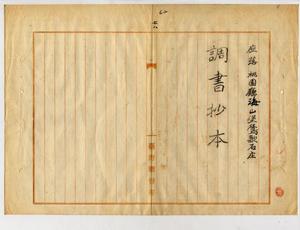 座落桃園廳海山堡鶯歌石庄
調書抄本